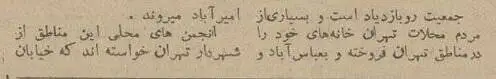 جمعیت روبازدیاد است و بسیاری‌از
مردم محلات تهران خانه‌های خود را
در مناطق تهران فروخته و بعباس‌آباد و
امیرآباد میروند .
انجمن های محلی این مناطق از
شهردار تهران خواسته اند که خیابان